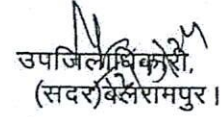 उपजिलाधिकारी,
(सदर)बलरामपुर।